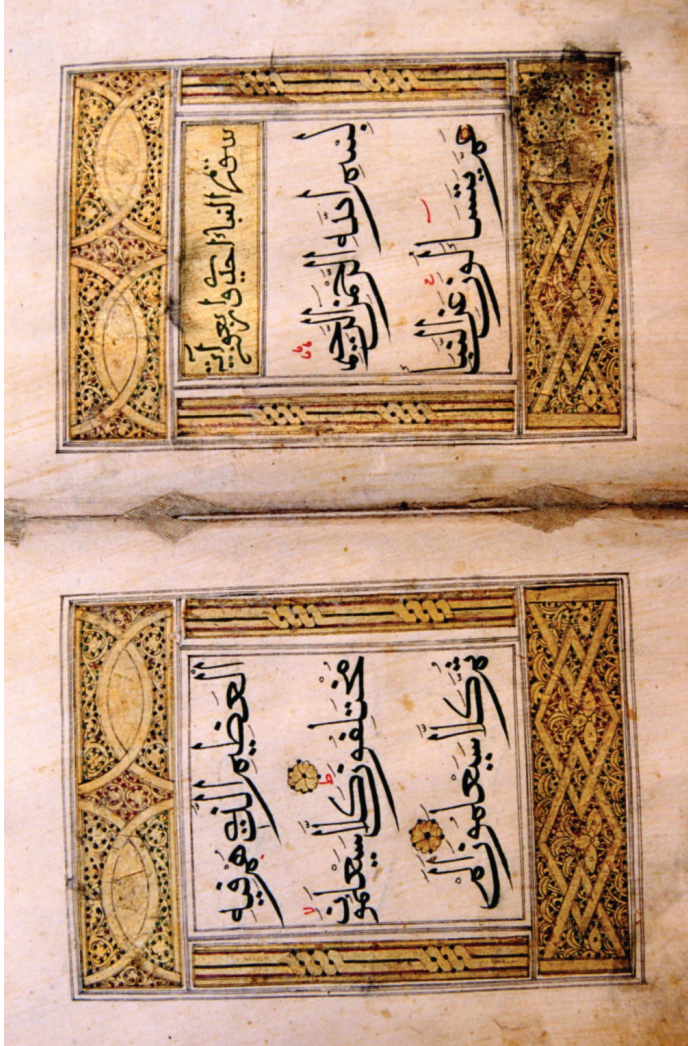 سورة النبأ احدى واربعون آية
بسم الله الرحمن الرحيم
عم يتساءلون عن النبأ
العظيم الذي هم فيه
مختلفون كلا سيعلمون
ثم كلا سيعلمون الم